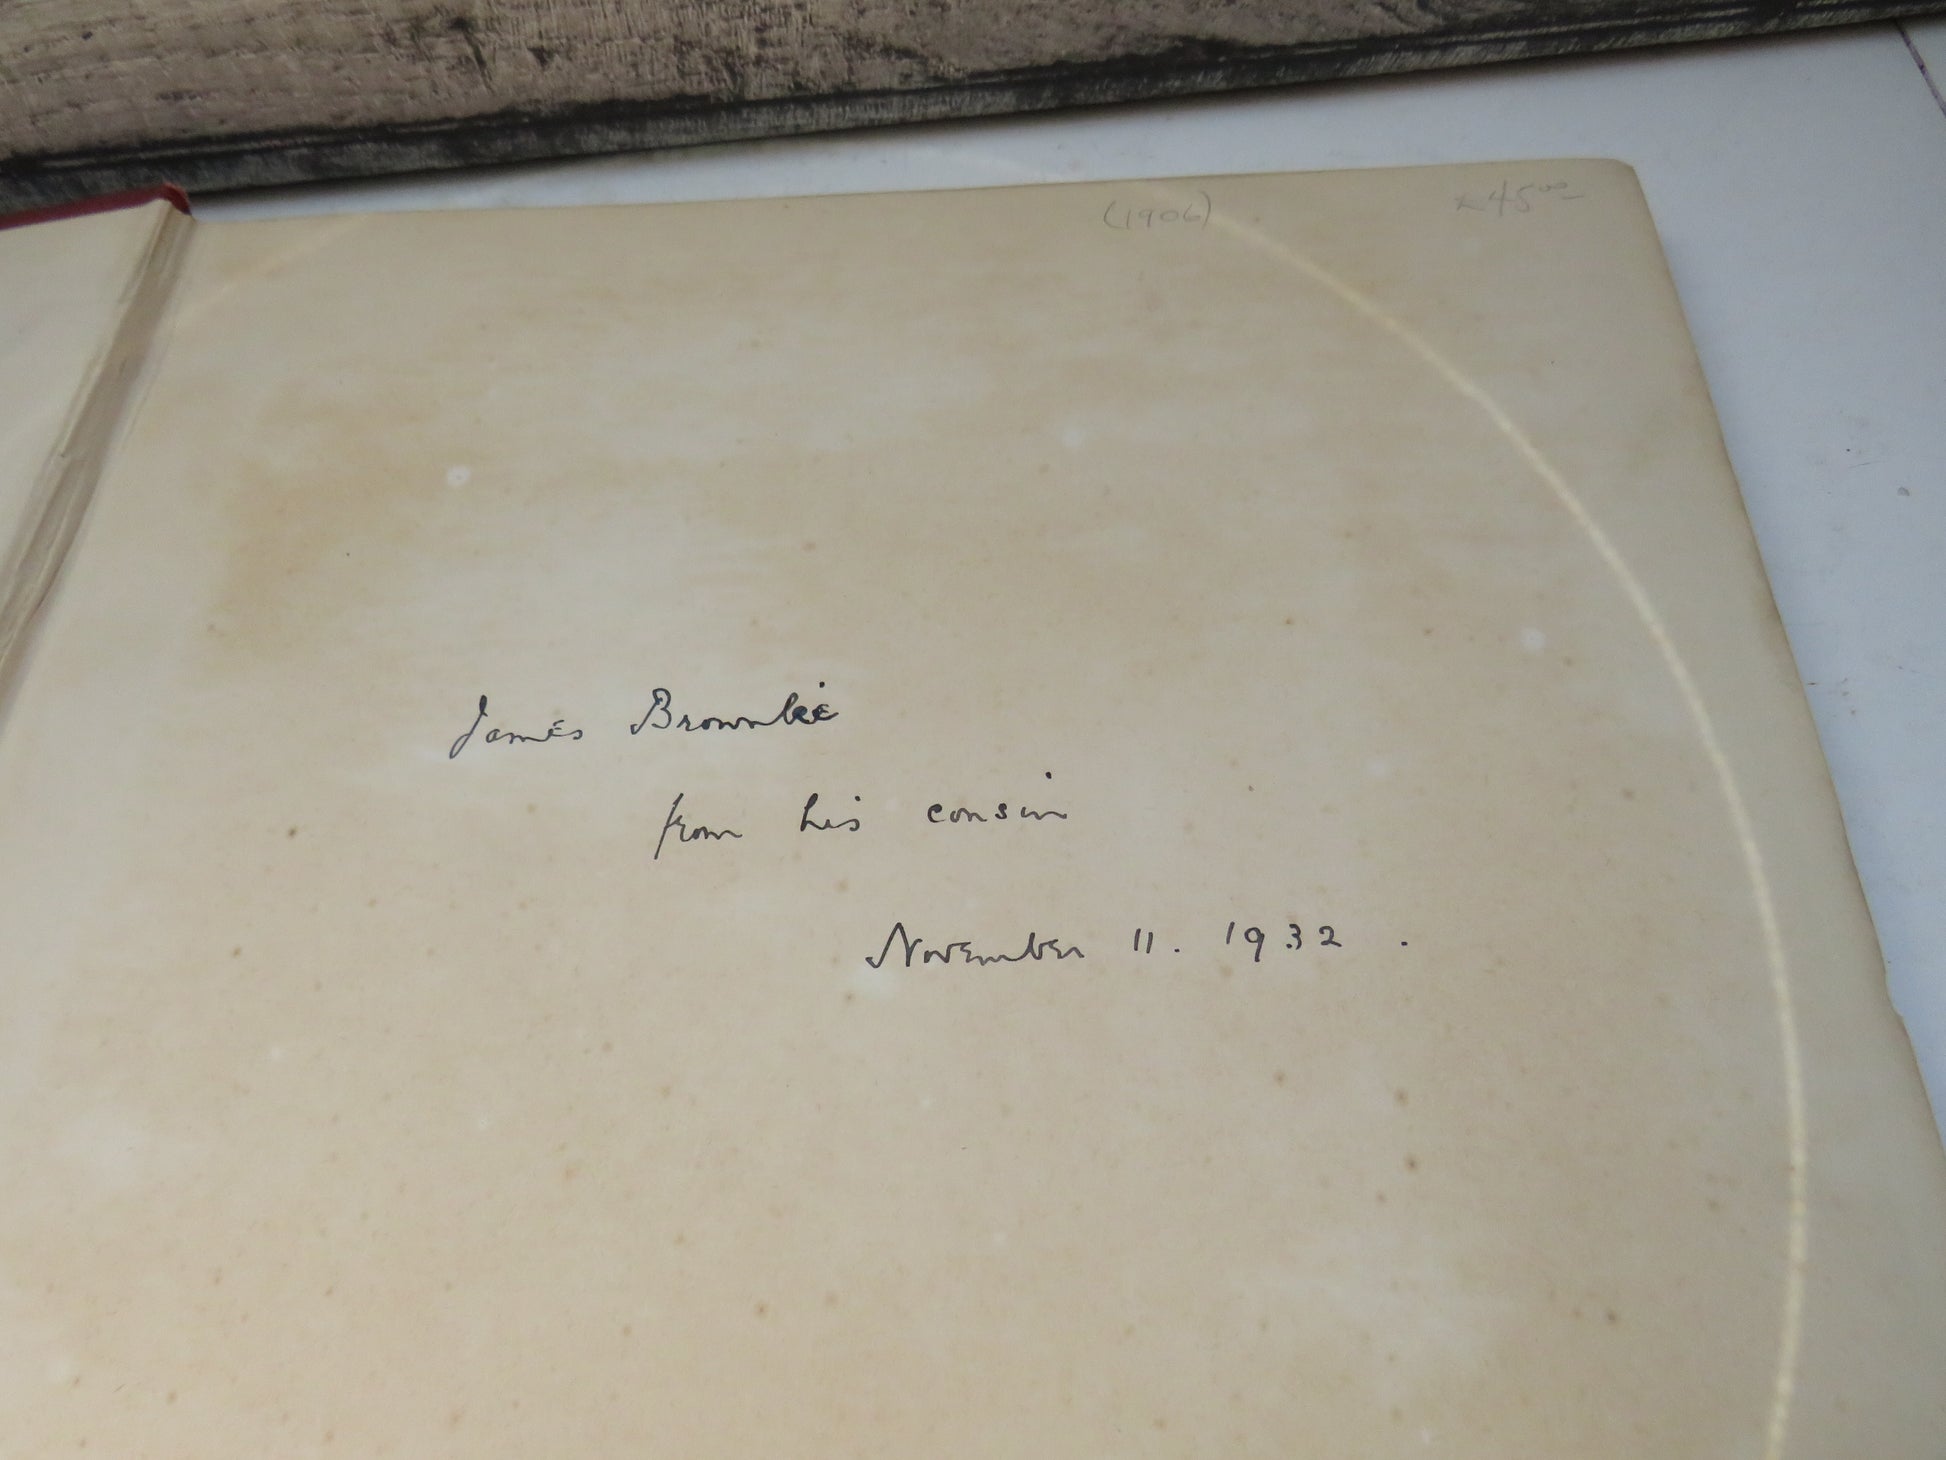 (1906) £45.00
James Brownlie
from his cousin
November 11. 1932.